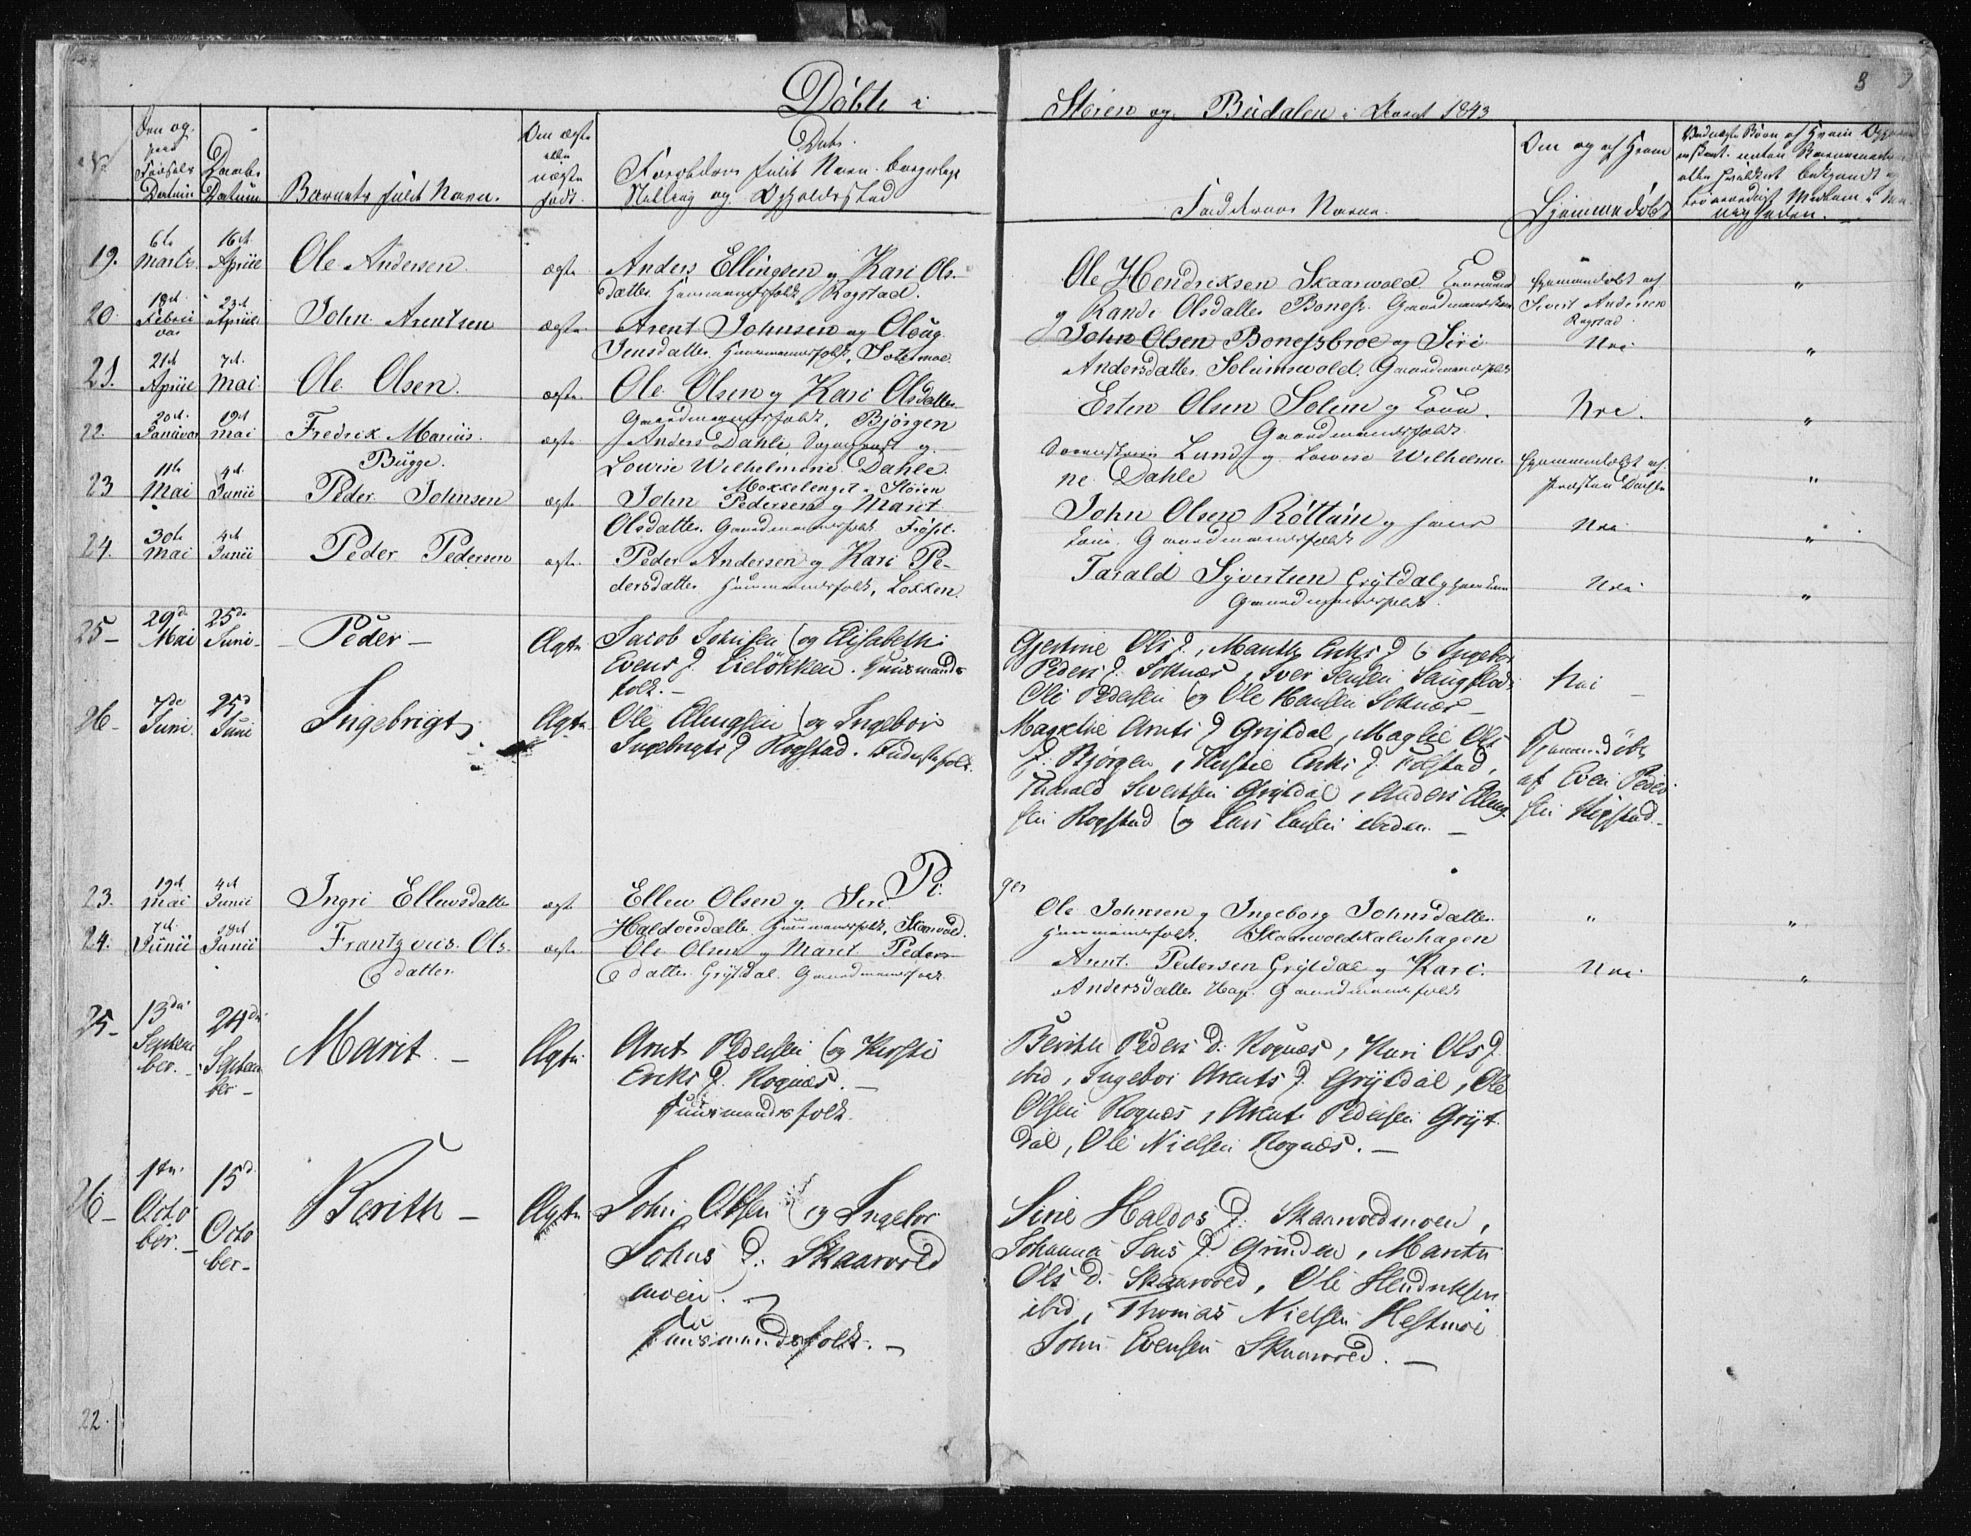 Døbte i Støren og Budalen i Aaret 1843
3
No
Den og
Fødsels
Datum
Daabs
Datum
Barnets fulde Navn.
Om ægte
eller
uægte
født.
Dato.
Forældrenes fulde Navn. borgerlige
Stilling og Opholdssted
Faddernes Navne.
Om og af Hvem
Hjemmedøbt
19. 6te Marts. 16de Apriie Ole Andersen ægte Anders Ellingsen og Kari Ols-
datter. Huusmandsfolk Rogstad.
Ole Hendriksen Skaarwold
og Randi Olsdatter Boness. Gaardmandsfolk
Hjemmedøbt af
Sivert Andersen
Rogstad
"
20. 18de Februar 23de Apriie John Arentsen ægte. Arent Johnsen og Oloug
Jensdatter. Huusmandsfolk, Sotetmoe
John Olsen Bonessbroe og Siri
Andersdatter Soleimswold. Gaardmandsfolk
Nei
"
21. 21de Apriie 7de Mai Ole Olsen. ægte Ole Olsen og Kari Olsdatter
Gaardmandsfolk, Bjørgen
Esten Olsen Solem og Kone.
Gaardmandsfolk.
Nei.
"
22. 20de Januar 19de Mai Fredrik Marius.
Bugge.
ægte Anders Dahle, Sogneprest og
Lowise Wilhelmine Dahle.
Moxxelenget i Støren
Lund og Lowise Wilhelmi
ne Dahle
Hjemmedøbt af
Præsten Dahle
"
23 11te Mai 4de Junii Peder Johnsen ægte John Pedersen og Marit
Olsdatter Gaardmandsfolk Frøset.
John Olsen Røttum og hans
Kone. Gaardmandsfolk
Nei
"
24. 30te Mai 4de Junii Peder Pedersen ægte. Peder Andersen og Kari Pe-
dersdatter Huusmandsfolk, Løkken.
Tarald Syvertsen Grytdal og hans Kone
Gaardmandsfolk.
Nei
"
25- 29de Mai 25de Juni- - Peder - Ægte Jacob Johnsen og Elisabeth
Evens D. Lieløkken. Huusmands
folk. -
Gjertine Ols D., Marith Eriks D Ingebor
Peders D. Soknæs, Iver Jensen Saugstad,
Ole Pedersen og Ole Hansen Soknæs -
Nei -
26- 7de Juni 25de Juni Ingebrigt Ægte Ole Ellingsen og Ingebor
Ingebrigts D Rogstad. Inderstefolk.
Margrethe Arnts D Grytdal, Maglie Ols
D. Bjørgen, Kirstie Eriks D. Folstad,
Tharald Sivertsen Grytdal, Anders Elling-
sen Rogstad og Lars Larsen ibidem. -
Hjemmedøbt
af Even Peder
sen Rogstad.-
Piger
23. 19de Mai 4de Junii Ingri Ellevsdatter ægte Ellev Olsen og Siri
Haldorsdatter Huusmandsfolk, Skarvold.
Ole Johnsen og Ingeborg Johnsdatter
Huusmandsfolk. Skaarwoldkalvhagen
"
"
24. 7de Junii 18de Junii Frantzvus Ols-
datter
ægte Ole Olsen og Marit Peders-
datter Grytdal. Gaardmandsfolk
Arnt. Pedersen Grytdal og Kari.
Andersdatter Hage Gaardmandsfolk
Nei.
"
25- 13de September. - 24de September - Marit. - Ægte Arnt Pedersen og Kirsti
Eriks D. Rognæs. -
Huusmandsfolk.
Berith Peders D: Rognæs, Kari Ols D.
ibid, Ingebor Arents D. Grytdal, Ole
Olsen Rognæs, Arent Pedersen Gryt-
dal, Ole Nielsen Rognæs. -
26- 1ste October. - 15de October - Berith - Ægte John Olsen og Ingebor
Johns D. Skaarvold
moen. -
Huusmandsfolk. -
Sirie Haldos D: Skaarvoldmoen,
Johanna Jens D. Grinden, Marith
Ols D. Skaarvold, Ole Hendriksen
ibid, Thomas Nielsen Hestmoe
John Evensen Skaarvold. -
22.